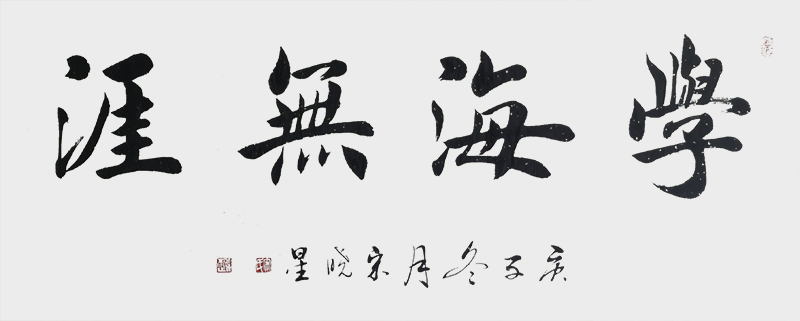 學海無涯
庚子冬月宋晓星